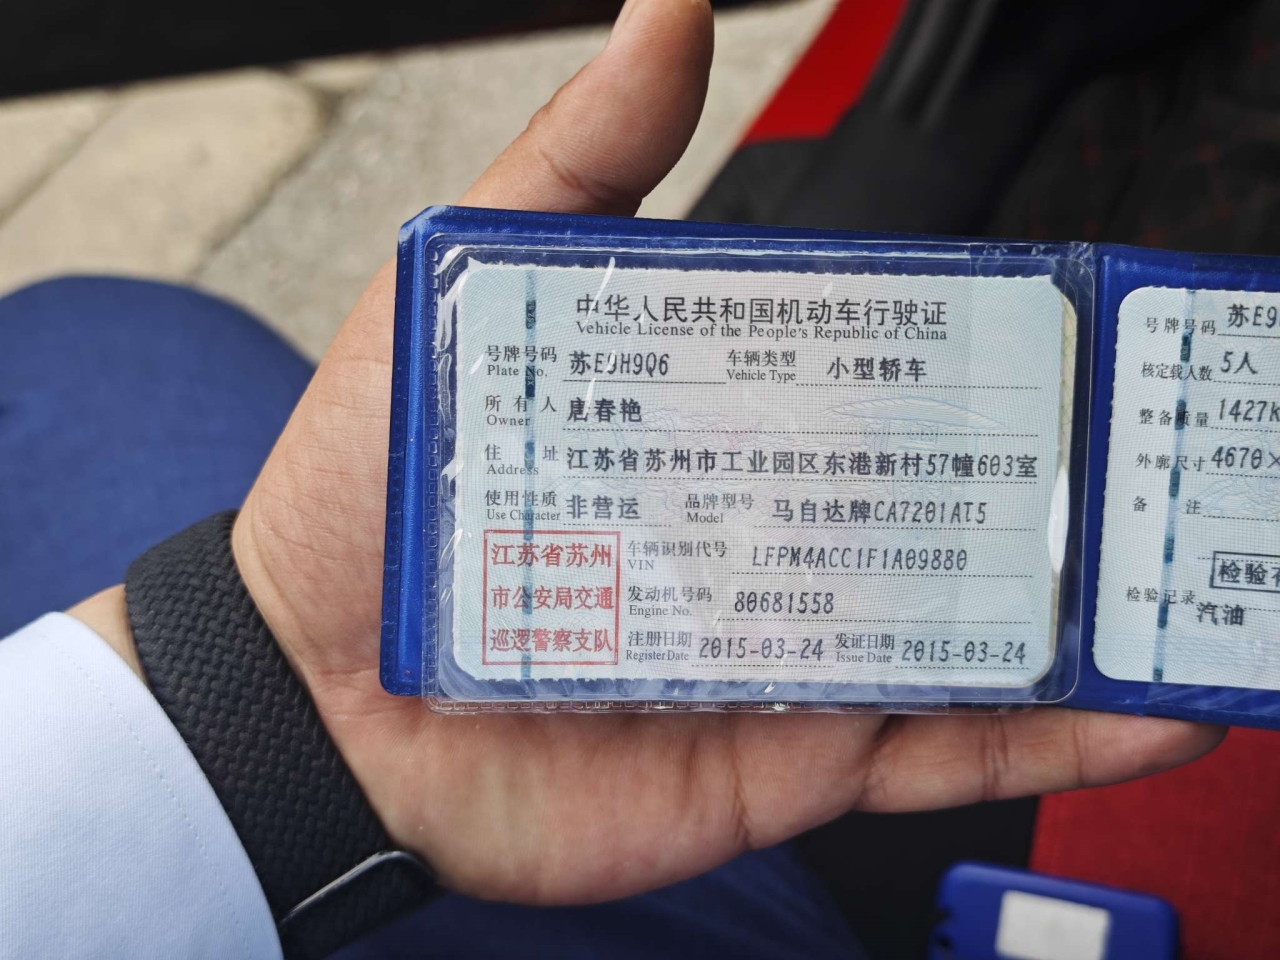 中华人民共和国机动车行驶证
Vehicle License of the People's Republic of China
号牌号码 苏E9H9Q6 车辆类型 小型轿车
Plate No. Vehicle Type
所有人 唐春艳
Owner
住址 江苏省苏州市工业园区东港新村57幢603室
Address
使用性质 非营运 品牌型号 马自达牌CA7201AT5
Use Character Model
江苏省苏州
市公安局交通
巡逻警察支队
车辆识别代号 LFPM4ACC1F1A09880
VIN
发动机号码 80681558
Engine No.
注册日期 2015-03-24 发证日期 2015-03-24
Register Date Issue Date
号牌号码 苏E9
核定载人数 5人
整备质量 1427K
外廓尺寸 4670×
备注
检验
检验记录
汽油